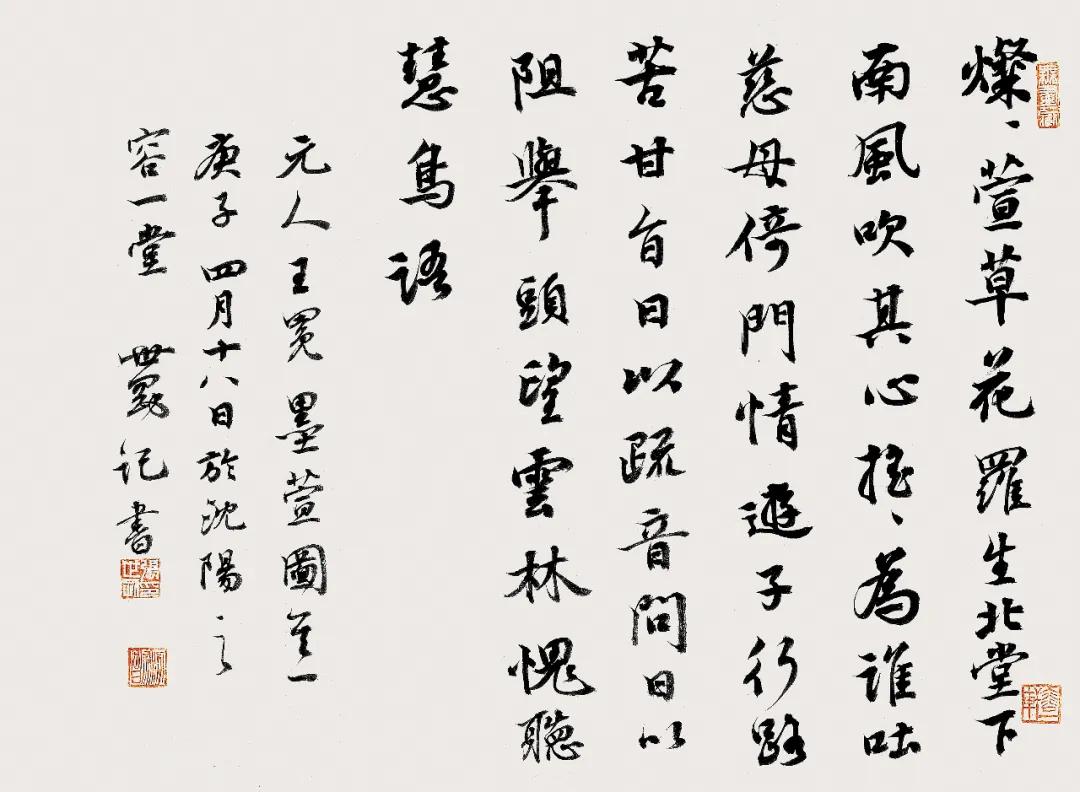 燦、萱草花羅生北堂下
南風吹其心搖、為誰吐
慈母倚門情遊子行路
苦甘旨日以疏音問日以
阻舉頭望雲林愧聽
慧鳥語
元人王冕墨萱圖其一
庚子四月十八日於沈陽之
容一堂 世剛記書